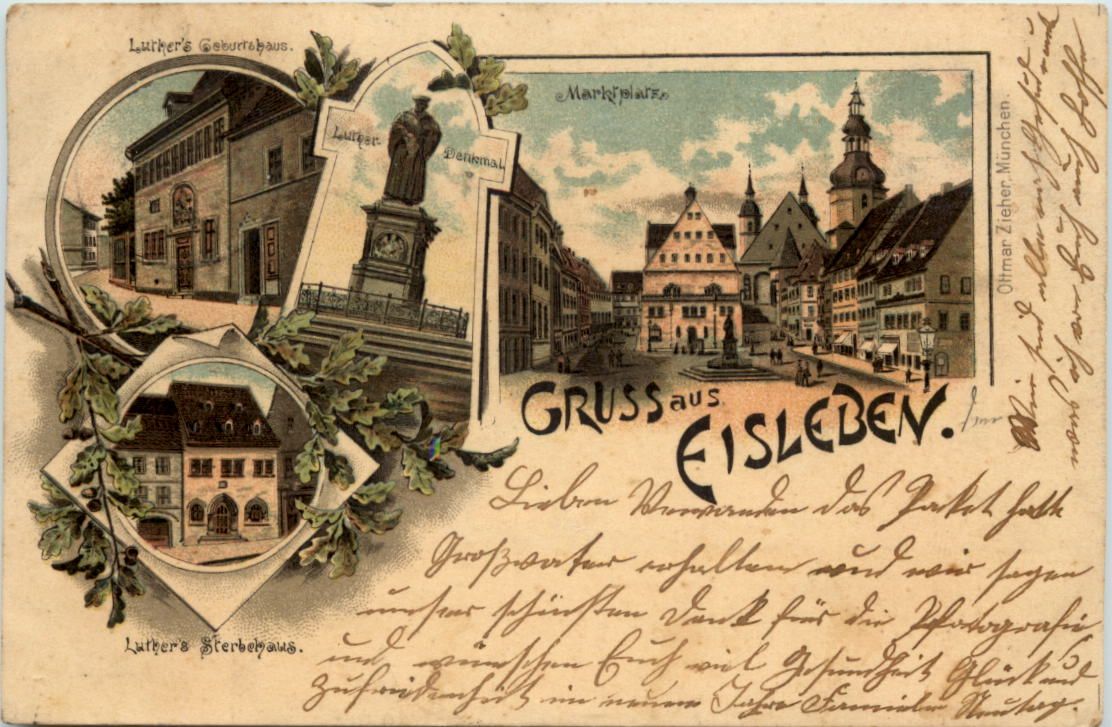 Luther's Geburtshaus.
Luther-Denkmal
Marktplatz.
Ottmar Zieher, München.
GRUSS aus
EISLEBEN.
Luther's Sterbehaus.
Lieben Verwanden das Paket hatt
Großvater erhalten und wir sagen
unser schönsten Dank für die Photografie
und wünschen Euch viel Gesundheit Glück und
Zufriedenheit im neuen Jahre Familie
Wir sind alle